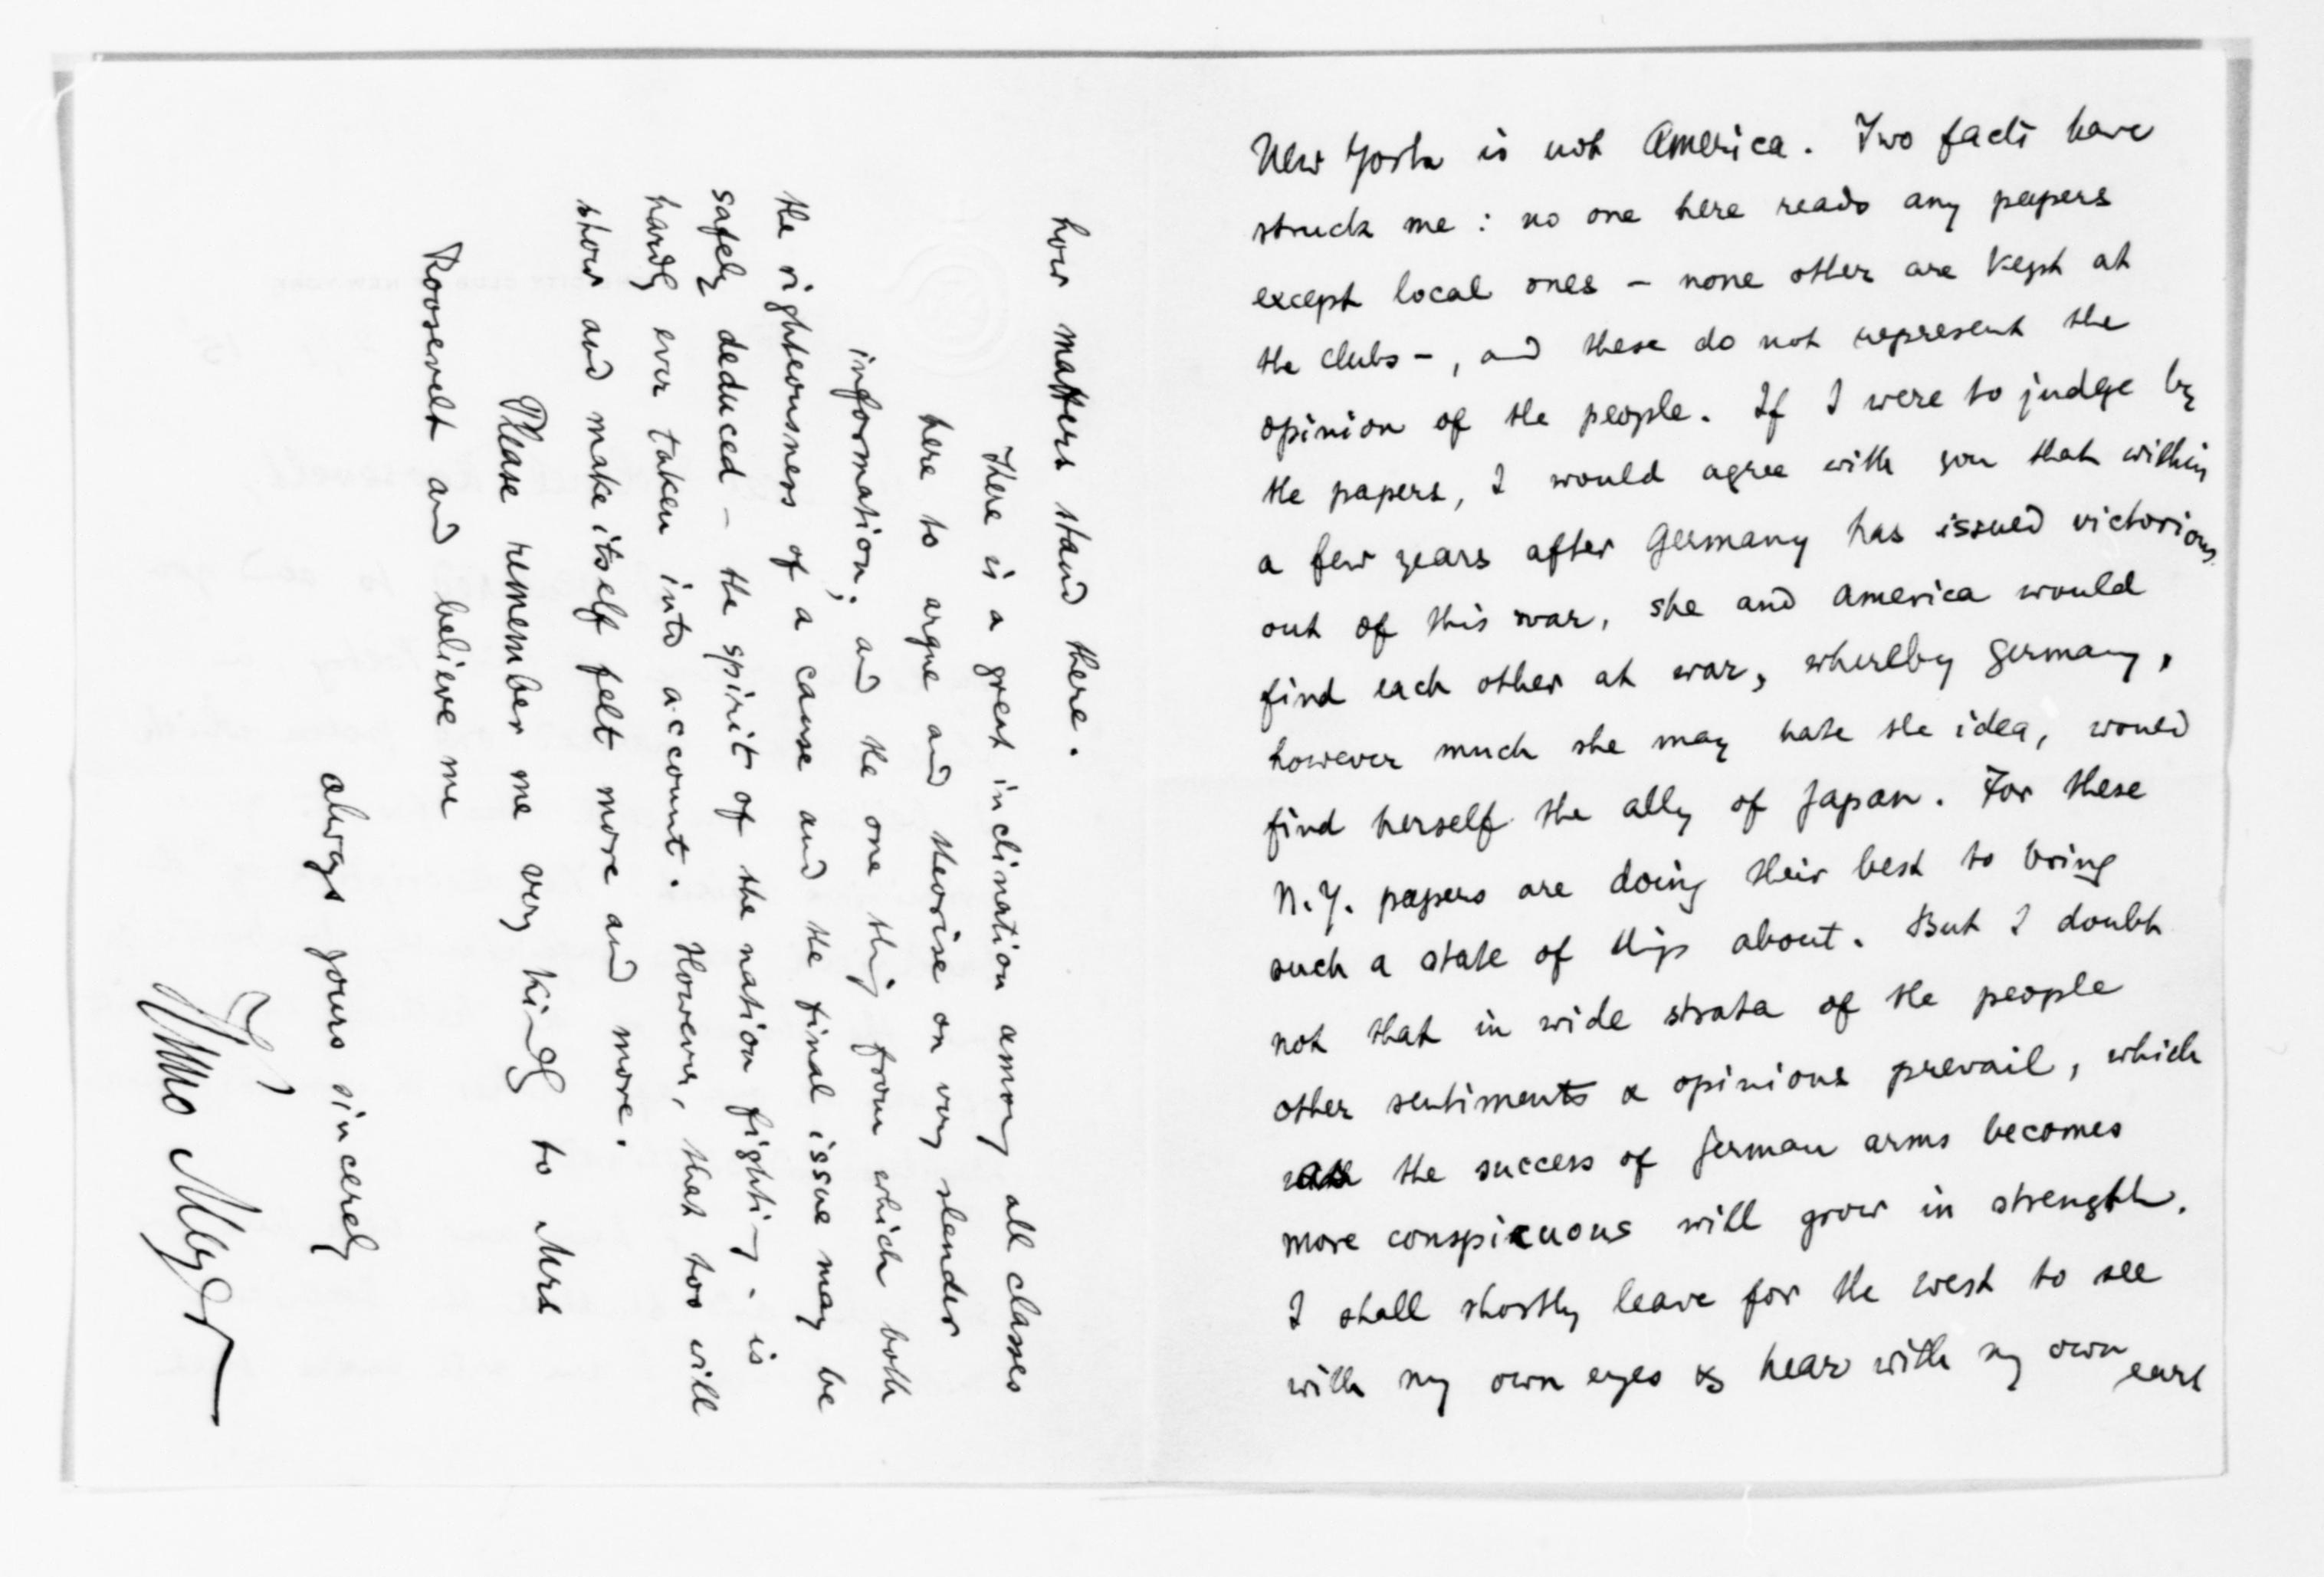 New York is not America. Two facts have
struck me: no one here reads any papers
except local ones – none other are kept at
the clubs –, and these do not represent the
opinion of the people. If I were to judge by
the papers, I would agree with you that within
a few years after Germany has issued victorious
out of this war, she and America would
find each other at war, whereby Germany,
however much she may hate the idea, would
find herself the ally of Japan. For these
N.Y. papers are doing their best to bring
such a state of things about. But I doubt
not that in wide strata of the people
other sentiments & opinions prevail, which
the success of German arms becomes
more conspicuous will grow in strength.
I shall shortly leave for the West to see
with my own eyes & hear with my own ears
how matters stand there.
There is a great inclination among all classes
here to argue and theorise on very slender
information; and the one thing from which both
the righteousness of a cause and the final issue may be
safely deduced – the spirit of the nation fighting – is
hardly ever taken into account. However, that too will
show and make itself felt more and more.
Please remember me very kindly to Mrs
Roosevelt and believe me
always yours sincerely
Kuno Meyer